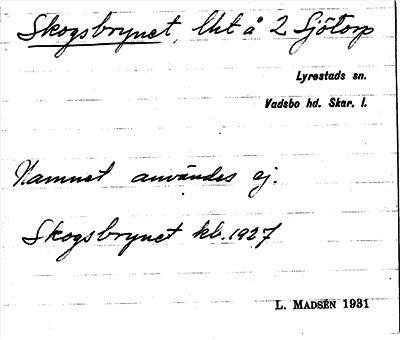 Skogsbrynet, lht å 2 Sjötorp
Lyrestads sn.
Vadsbo hd. Skar. l.
Namnet användes ej.
Skogsbrynet kb. 1927
L. Madsén 1931